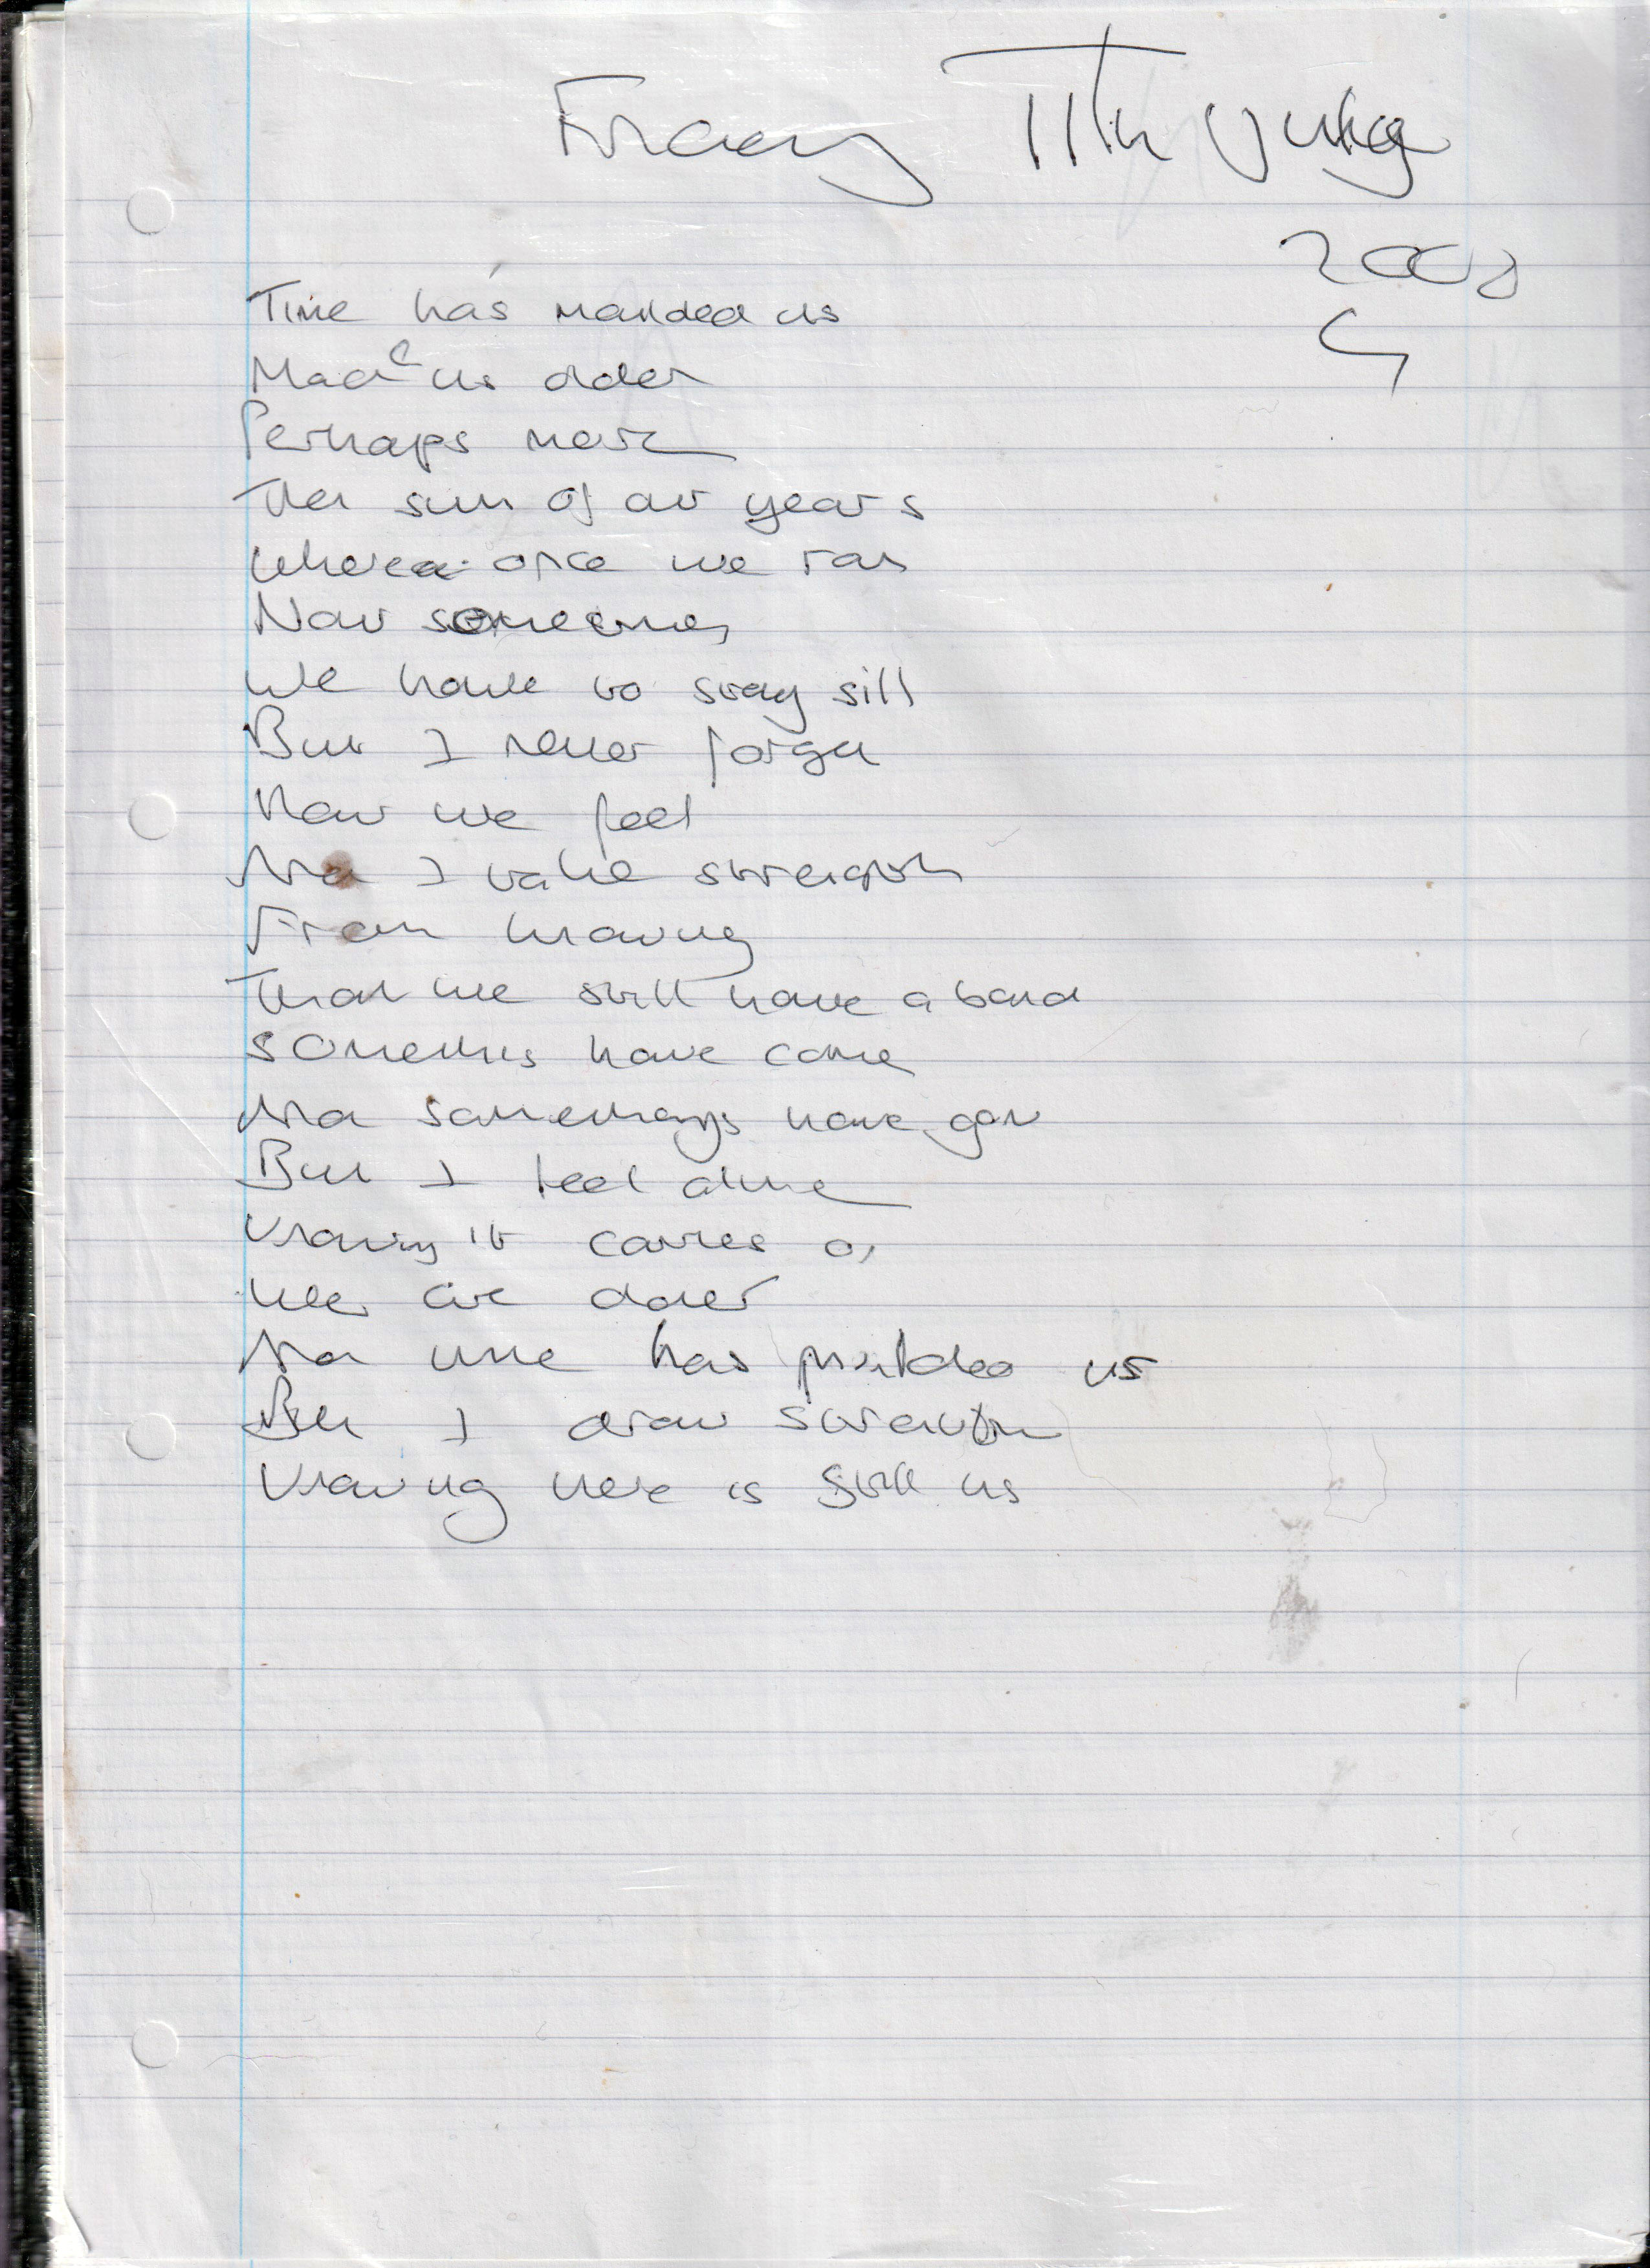 Friday 11th July
2008
Time has moulded us
Made us older
Perhaps more
Then sum of our years
Where once we ran
Now sometimes
We have to stay sill
But I never forget
How we feel
And I take strength
From knowing
That we still have a bond
Somethis have come
And somethings have gon
But I feel alive
Knowing it carries on
We are older
And time has moulded us
But I draw strength
Knowing here is still us